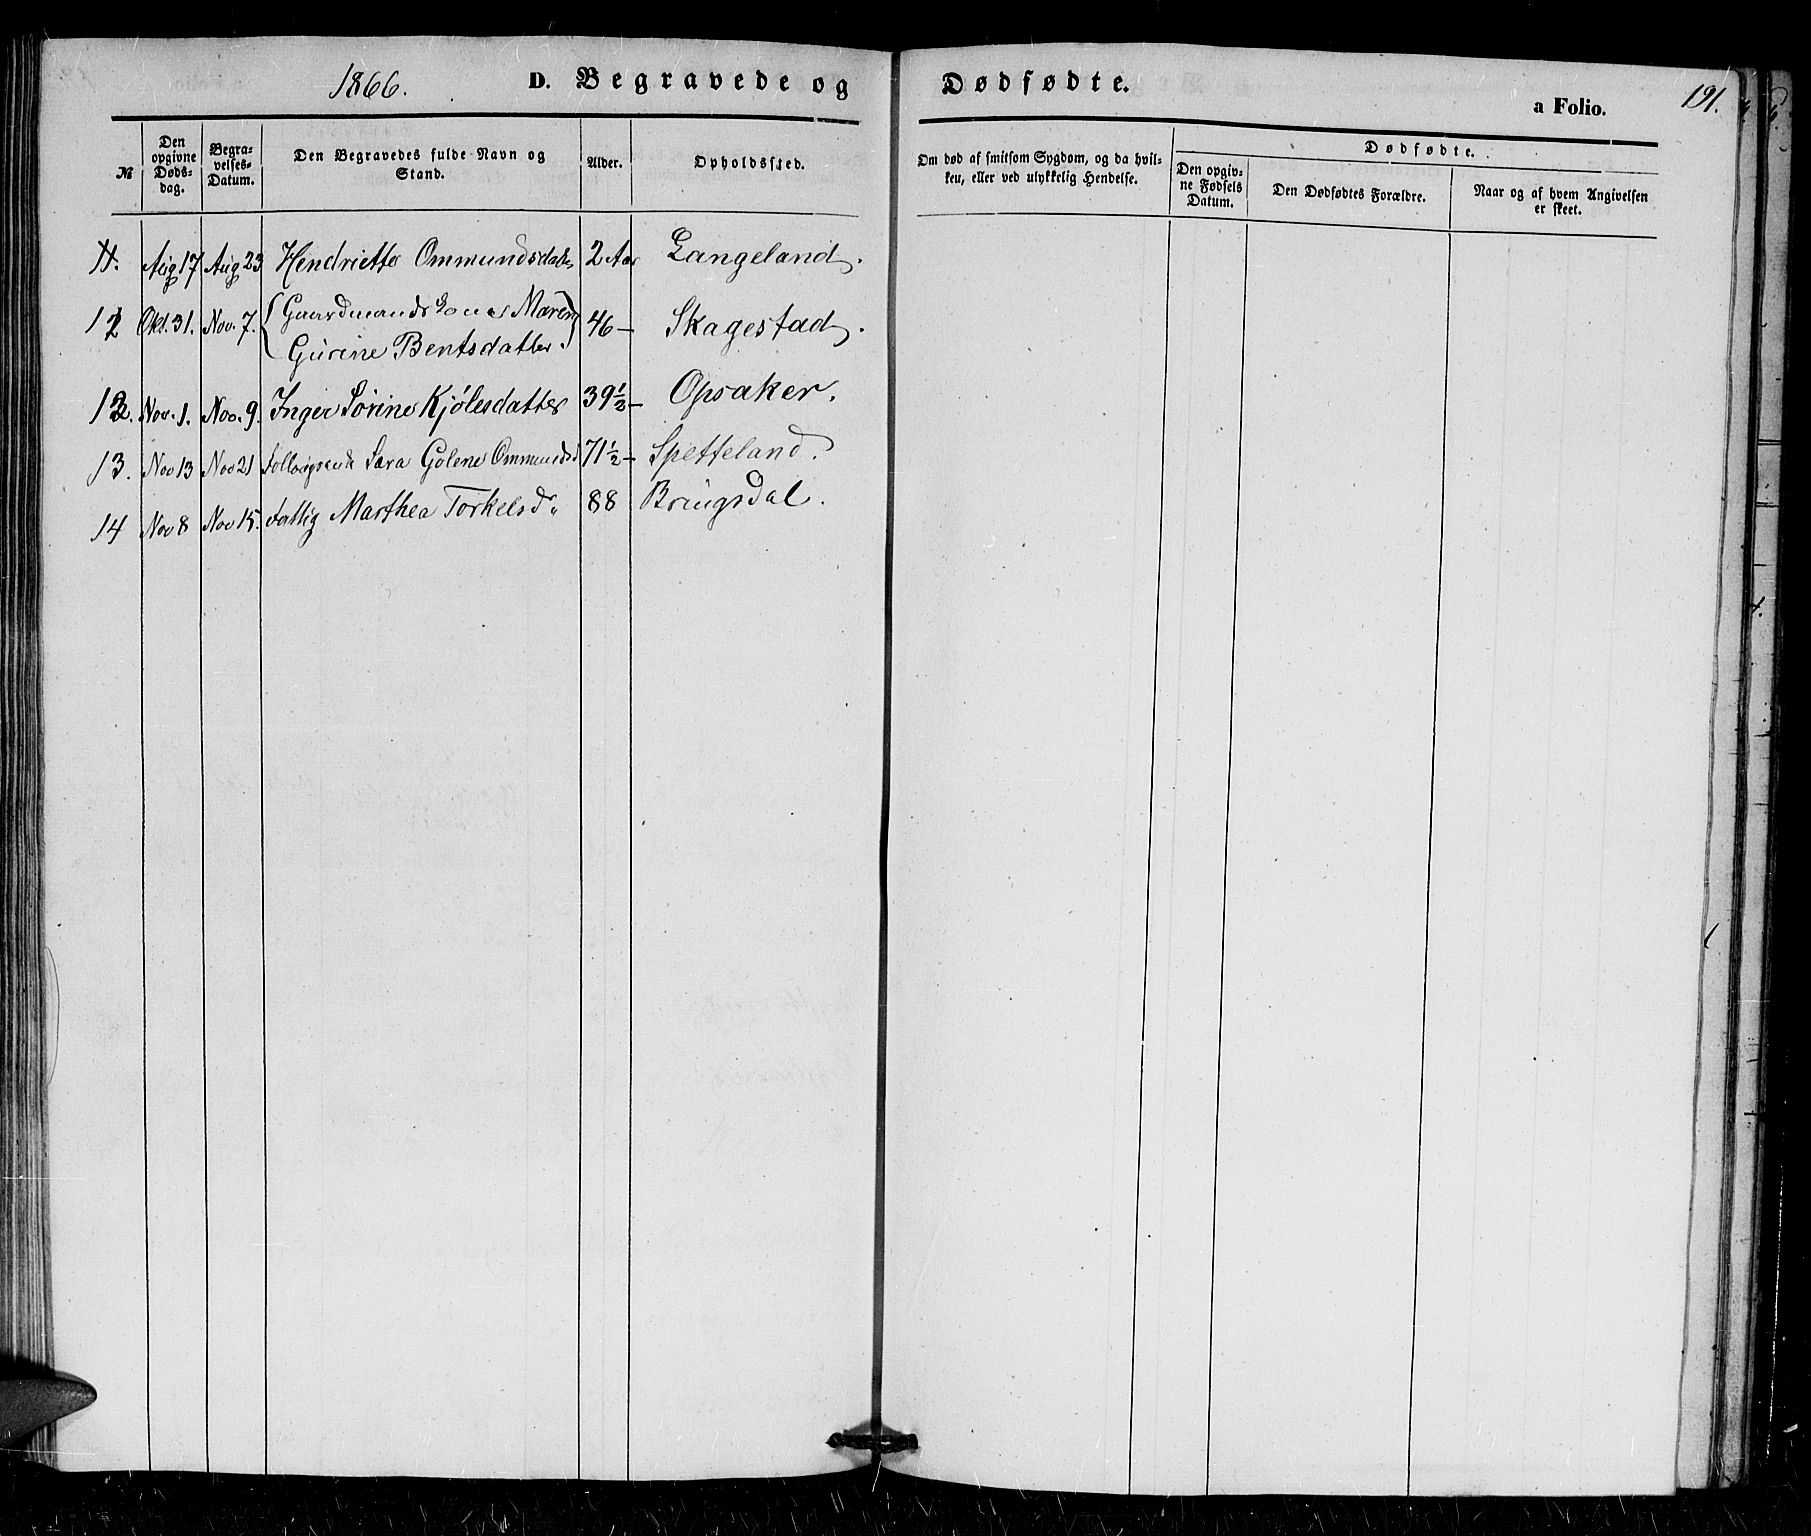 1866. D. Begravede og Dødfødte. 191.
a Folio.
№ Den opgivne Dødsdag. Begravelses-Datum. Den Begravedes fulde Navn og Stand. Alder. Opholdssted. Om død af smitsom Sygdom, og da hvilken, eller ved ulykkelig Hendelse. Dødfødte.
Den opgivne Fødsels Datum. Den Dødfødtes Forældre. Naar og af hvem Angivelsen er skeet.
11. Aug 17 Aug 23 Hendriette Ommundsdatter 2 Aar Langeland.
12 Okt. 31. Nov. 7. Gaardmandskone Maren
Gurine Bentsdatter. 46 — Skagestad.
12. Nov. 1. Nov. 9. Inger Sørine Kjølesdatter 39½ — Opsaker.
13. Nov 13 Nov 21 Sara Golene Ommundsd 71½ — Spetteland.
14 Nov 8 Nov 15. Fattig Marthea Torkelsd. 88 Bringsdal.